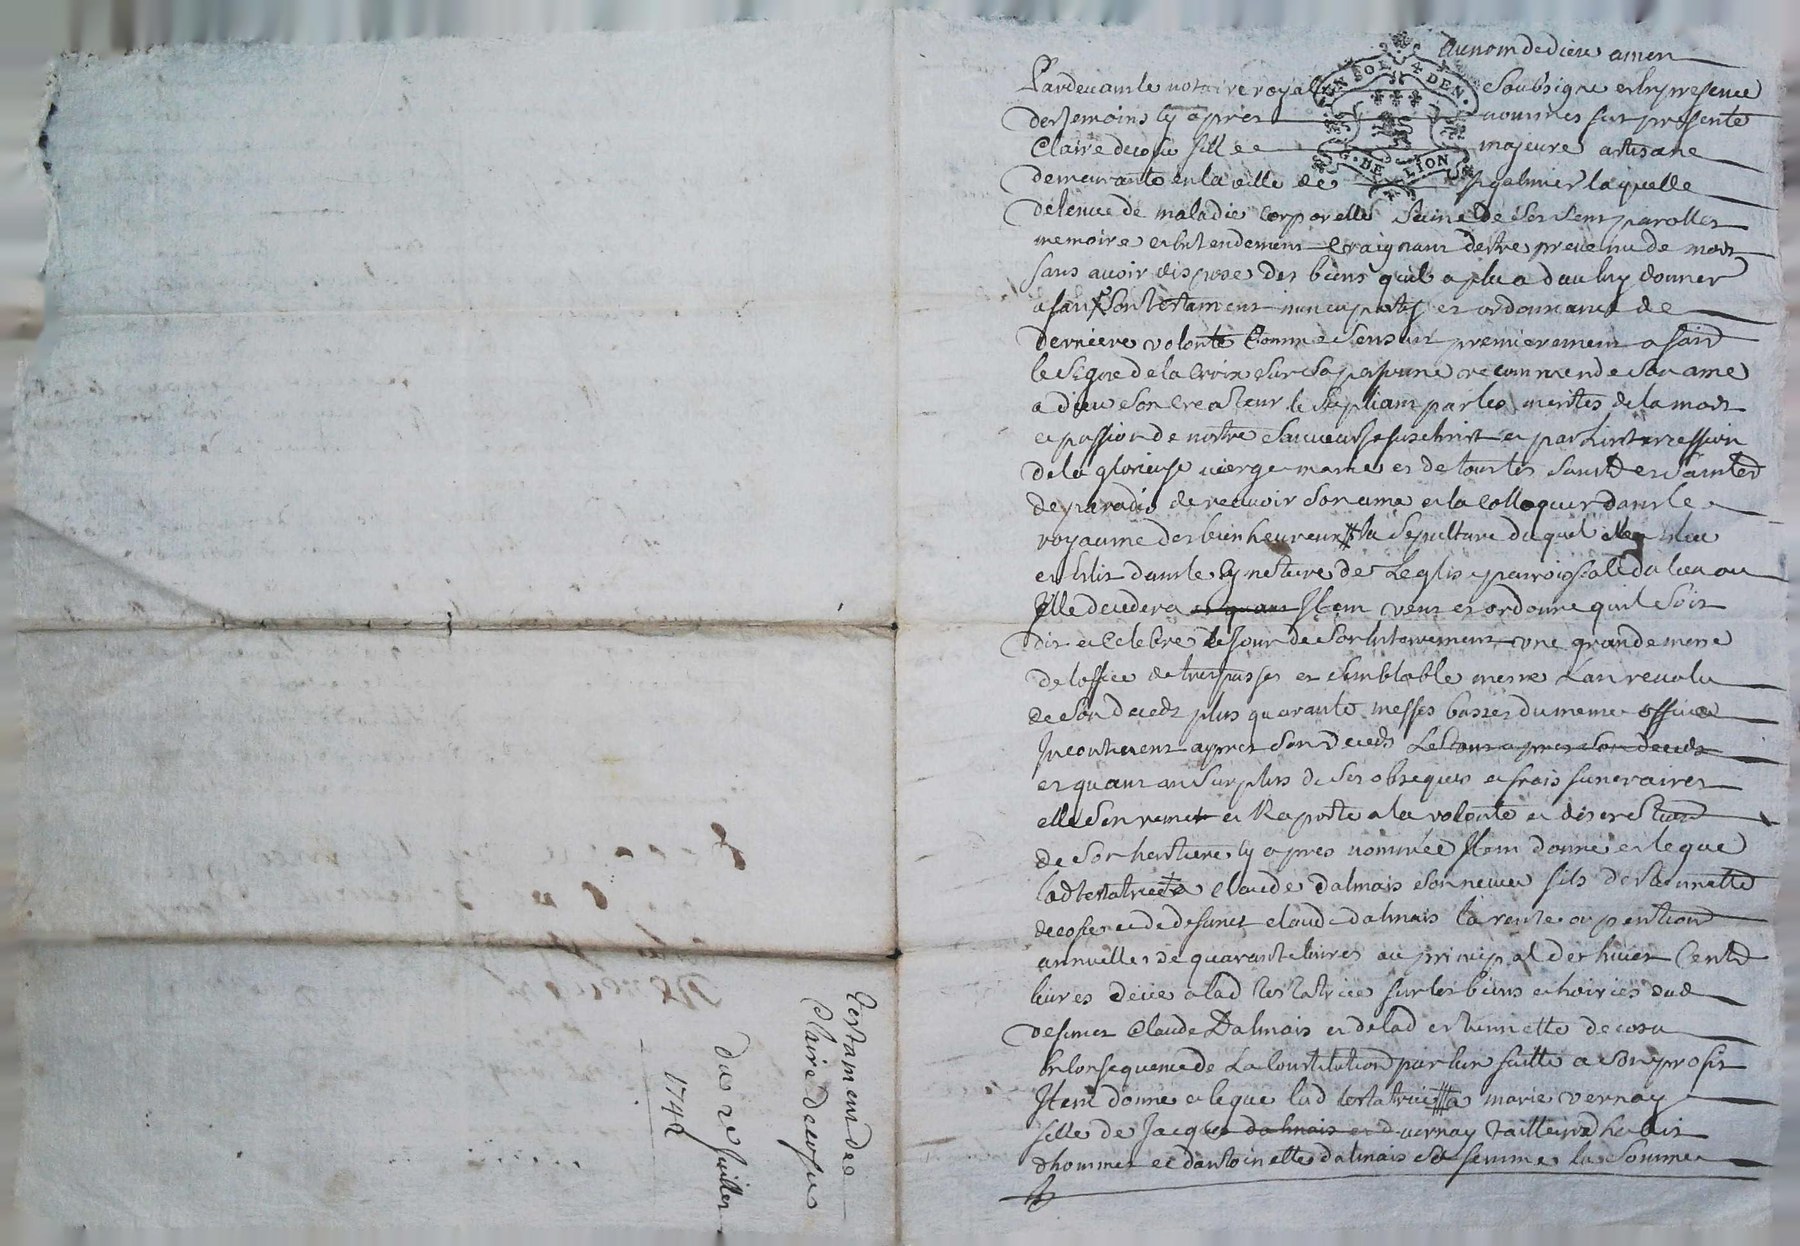 Au nom de dieu amen
Pardevant le notaire royal soubsigne et en presence
des temoins cy apres nommes fut presente
Claire decosu fille majeure artisane
demeurante en la ville de st galmier laquelle
detenue de maladie corporelle saine de ses sens parolles
memoire et entendement craignant destre prevenue de mort
sans avoir dispose des biens quil a plu a dieu luy donner
a fait son testament nuncupatif et ordonnance de
derniere volonte comme sensuit premierement a fait
le signe de la croix sur sa personne recommende son ame
a dieu son createur le supliant par les merites de la mort
et passion de nostre sauveur Jesus christ et par lintercession
de la glorieuse vierge marie et de tous les saints et saintes
de paradis de recevoir son ame et la colloquer dans le
royaume des bienheureux la sepulture duquel elle
et elit dans le cymetiere de leglise parroissiale du lieu ou
Jlle decedera et quant Jtem veut et ordonne quil soit
dit et celebre le jour de son enterrement une grande messe
de loffice de trespasses et semblable messe lan revolu
de son deceds plus quarante messes basses du meme office
Jncontinent apres son deceds Les tous apres son deceds
et quant au surplus de ses obseques et frais funeraires
elle sen remet et raporte a la volonte et discretion
de son heritiere cy apres nommée Jtem donne et legue
lad testatrice a Claude dalmais son neveu fils destiennette
decosu et de defunct claude dalmais la rente ou pention
annuelle de quarante livres au principal de huict cents
livres deüe a lad testatrice sur les biens et hoiries dud
defunct Claude Dalmais et de lad estiennette decosu
en consequence de la constitution par eux faitte a son profit
Jtem donne et legue lad testatrice a marie vernay
fille de Jacques dalmais et d vernay tailleur dhabit
dhommes et dantoinette dalmais sa femme la somme
EN SOL 4 DEN.
G. DE LION
Testament de
Claire decosu
du 2e Juillet
1742